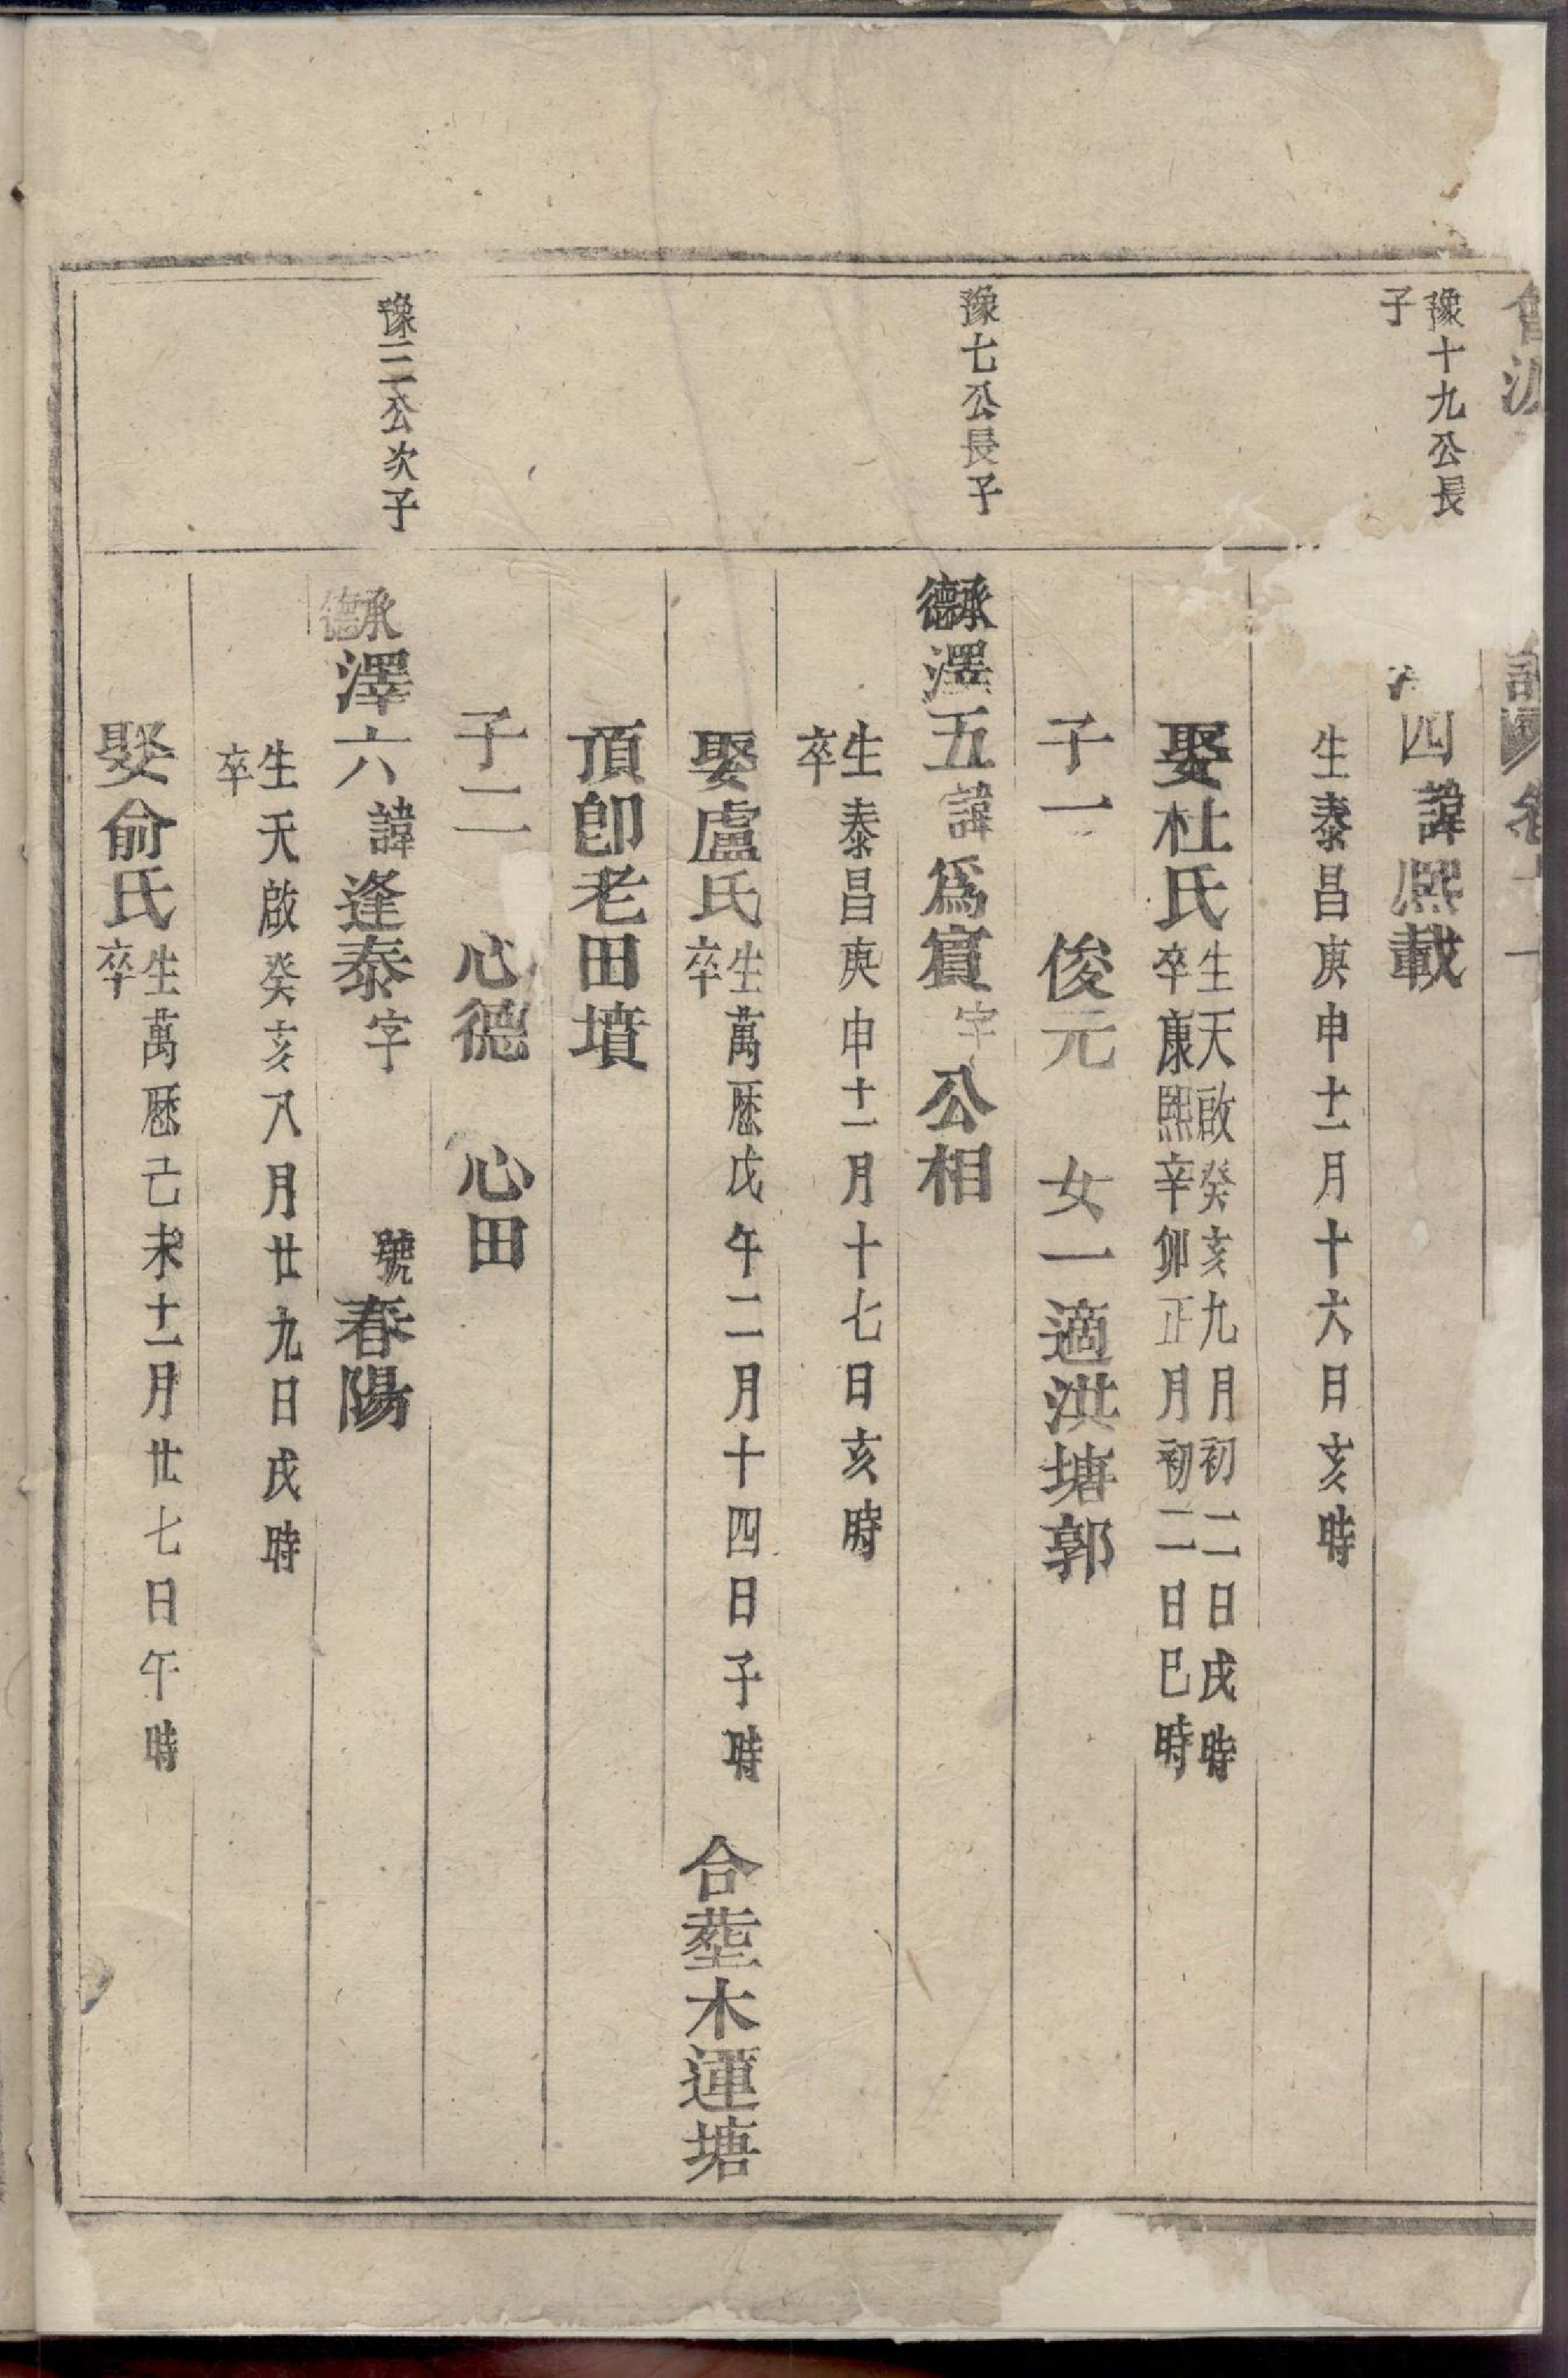 豫十九公長
子
四諱熙載
生泰昌庚申十二月十六日亥時
娶杜氏生天啟癸亥九月初二日戌時
卒康熙辛卯正月初二日巳時
子一 俊元 女一適洪塘郭
豫七公長子
承德澤五諱爲賓字公相
生泰昌庚申十二月十七日亥時
卒
娶盧氏生萬厯戊午二月十四日子時 合塟木蓮塘
卒
頂卽老田墳
子二 心德 心田
豫三公次子
承德澤六諱逢泰字 號春陽
生天啟癸亥八月廿九日戌時
卒
娶俞氏生萬厯己未十二月廿七日午時
卒